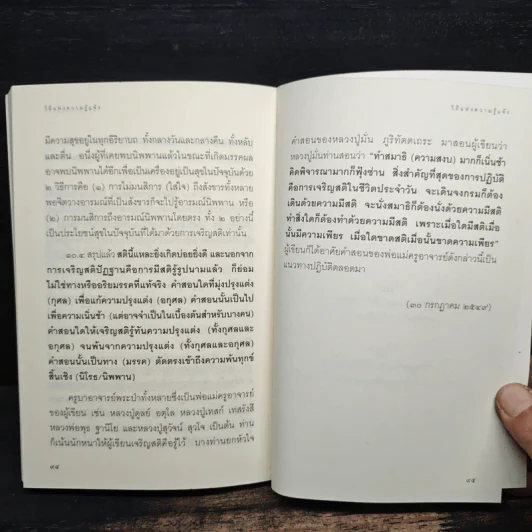 วิถีแห่งความรู้แจ้ง
มีความสุขอยู่ในทุกอิริยาบถ ทั้งกลางวันและกลางคืน ทั้งหลับ
และตื่น อนึ่งผู้ที่เคยพบนิพพานแล้วในขณะที่เกิดมรรคผล
อาจพบนิพพานได้อีกเพื่อเป็นเครื่องอยู่เป็นสุขในปัจจุบันด้วย
๒ วิธีการคือ (๑) การไม่มนสิการ (ใส่ใจ) ถึงสังขารทั้งหลาย
พอจิตวางอารมณ์ที่เป็นสังขารก็จะไปรู้อารมณ์นิพพาน หรือ
(๒) การมนสิการถึงอารมณ์นิพพานโดยตรง ทั้ง ๒ อย่างนี้
เป็นประโยชน์สุขในปัจจุบันที่ได้มาด้วยการเจริญสติเท่านั้น
๑๐.๕ สรุปแล้ว สตินี้แหละยิ่งเกิดบ่อยยิ่งดี และนอกจาก
การเจริญสติปัฏฐานคือการมีสติรู้รูปนามแล้ว ก็ย่อม
ไม่ใช่ทางหรืออริยมรรคที่แท้จริง คำสอนใดที่มุ่งปรุงแต่ง
(กุศล) เพื่อแก้ความปรุงแต่ง (อกุศล) คำสอนนั้นเป็นไป
เพื่อความเนิ่นช้า (แต่อาจจำเป็นในเบื้องต้นสำหรับบางคน)
คำสอนใดให้เจริญสติรู้ทันความปรุงแต่ง (ทั้งกุศลและ
อกุศล) จนพ้นจากความปรุงแต่ง (ทั้งกุศลและอกุศล)
คำสอนนั้นเป็นทาง (มรรค) ตัดตรงเข้าถึงความพ้นทุกข์
สิ้นเชิง (นิโรธ/นิพพาน)
ครูบาอาจารย์พระป่าทั้งหลายซึ่งเป็นพ่อแม่ครูอาจารย์
ของผู้เขียน เช่น หลวงปู่ดูลย์ อตุโล หลวงปู่เทสก์ เทสรังสี
หลวงพ่อพุธ ฐานิโย และหลวงปู่สุวัจน์ สุวโจ เป็นต้น ท่าน
ก็เน้นนักหนาให้ผู้เขียนเจริญสติคือรู้ไว้ บางท่านยกหัวใจ
๙๔
วิถีแห่งความรู้แจ้ง
คำสอนของหลวงปู่มั่น ภูริทัตตเถระ มาสอนผู้เขียนว่า
หลวงปู่มั่นท่านสอนว่า "ทำสมาธิ (ความสงบ) มากก็เนิ่นช้า
คิดพิจารณามากก็ฟุ้งซ่าน สิ่งสำคัญที่สุดของการปฏิบัติ
คือการเจริญสติในชีวิตประจำวัน จะเดินจงกรมก็ต้อง
เดินด้วยความมีสติ จะนั่งสมาธิก็ต้องนั่งด้วยความมีสติ
ทำสิ่งใดก็ต้องทำด้วยความมีสติ เพราะเมื่อใดมีสติเมื่อ
นั้นมีความเพียร เมื่อใดขาดสติเมื่อนั้นขาดความเพียร"
ผู้เขียนก็ได้อาศัยคำสอนของพ่อแม่ครูอาจารย์ดังกล่าวนี้เป็น
แนวทางปฏิบัติตลอดมา
(๓๐ กรกฎาคม ๒๕๔๙)
๙๕